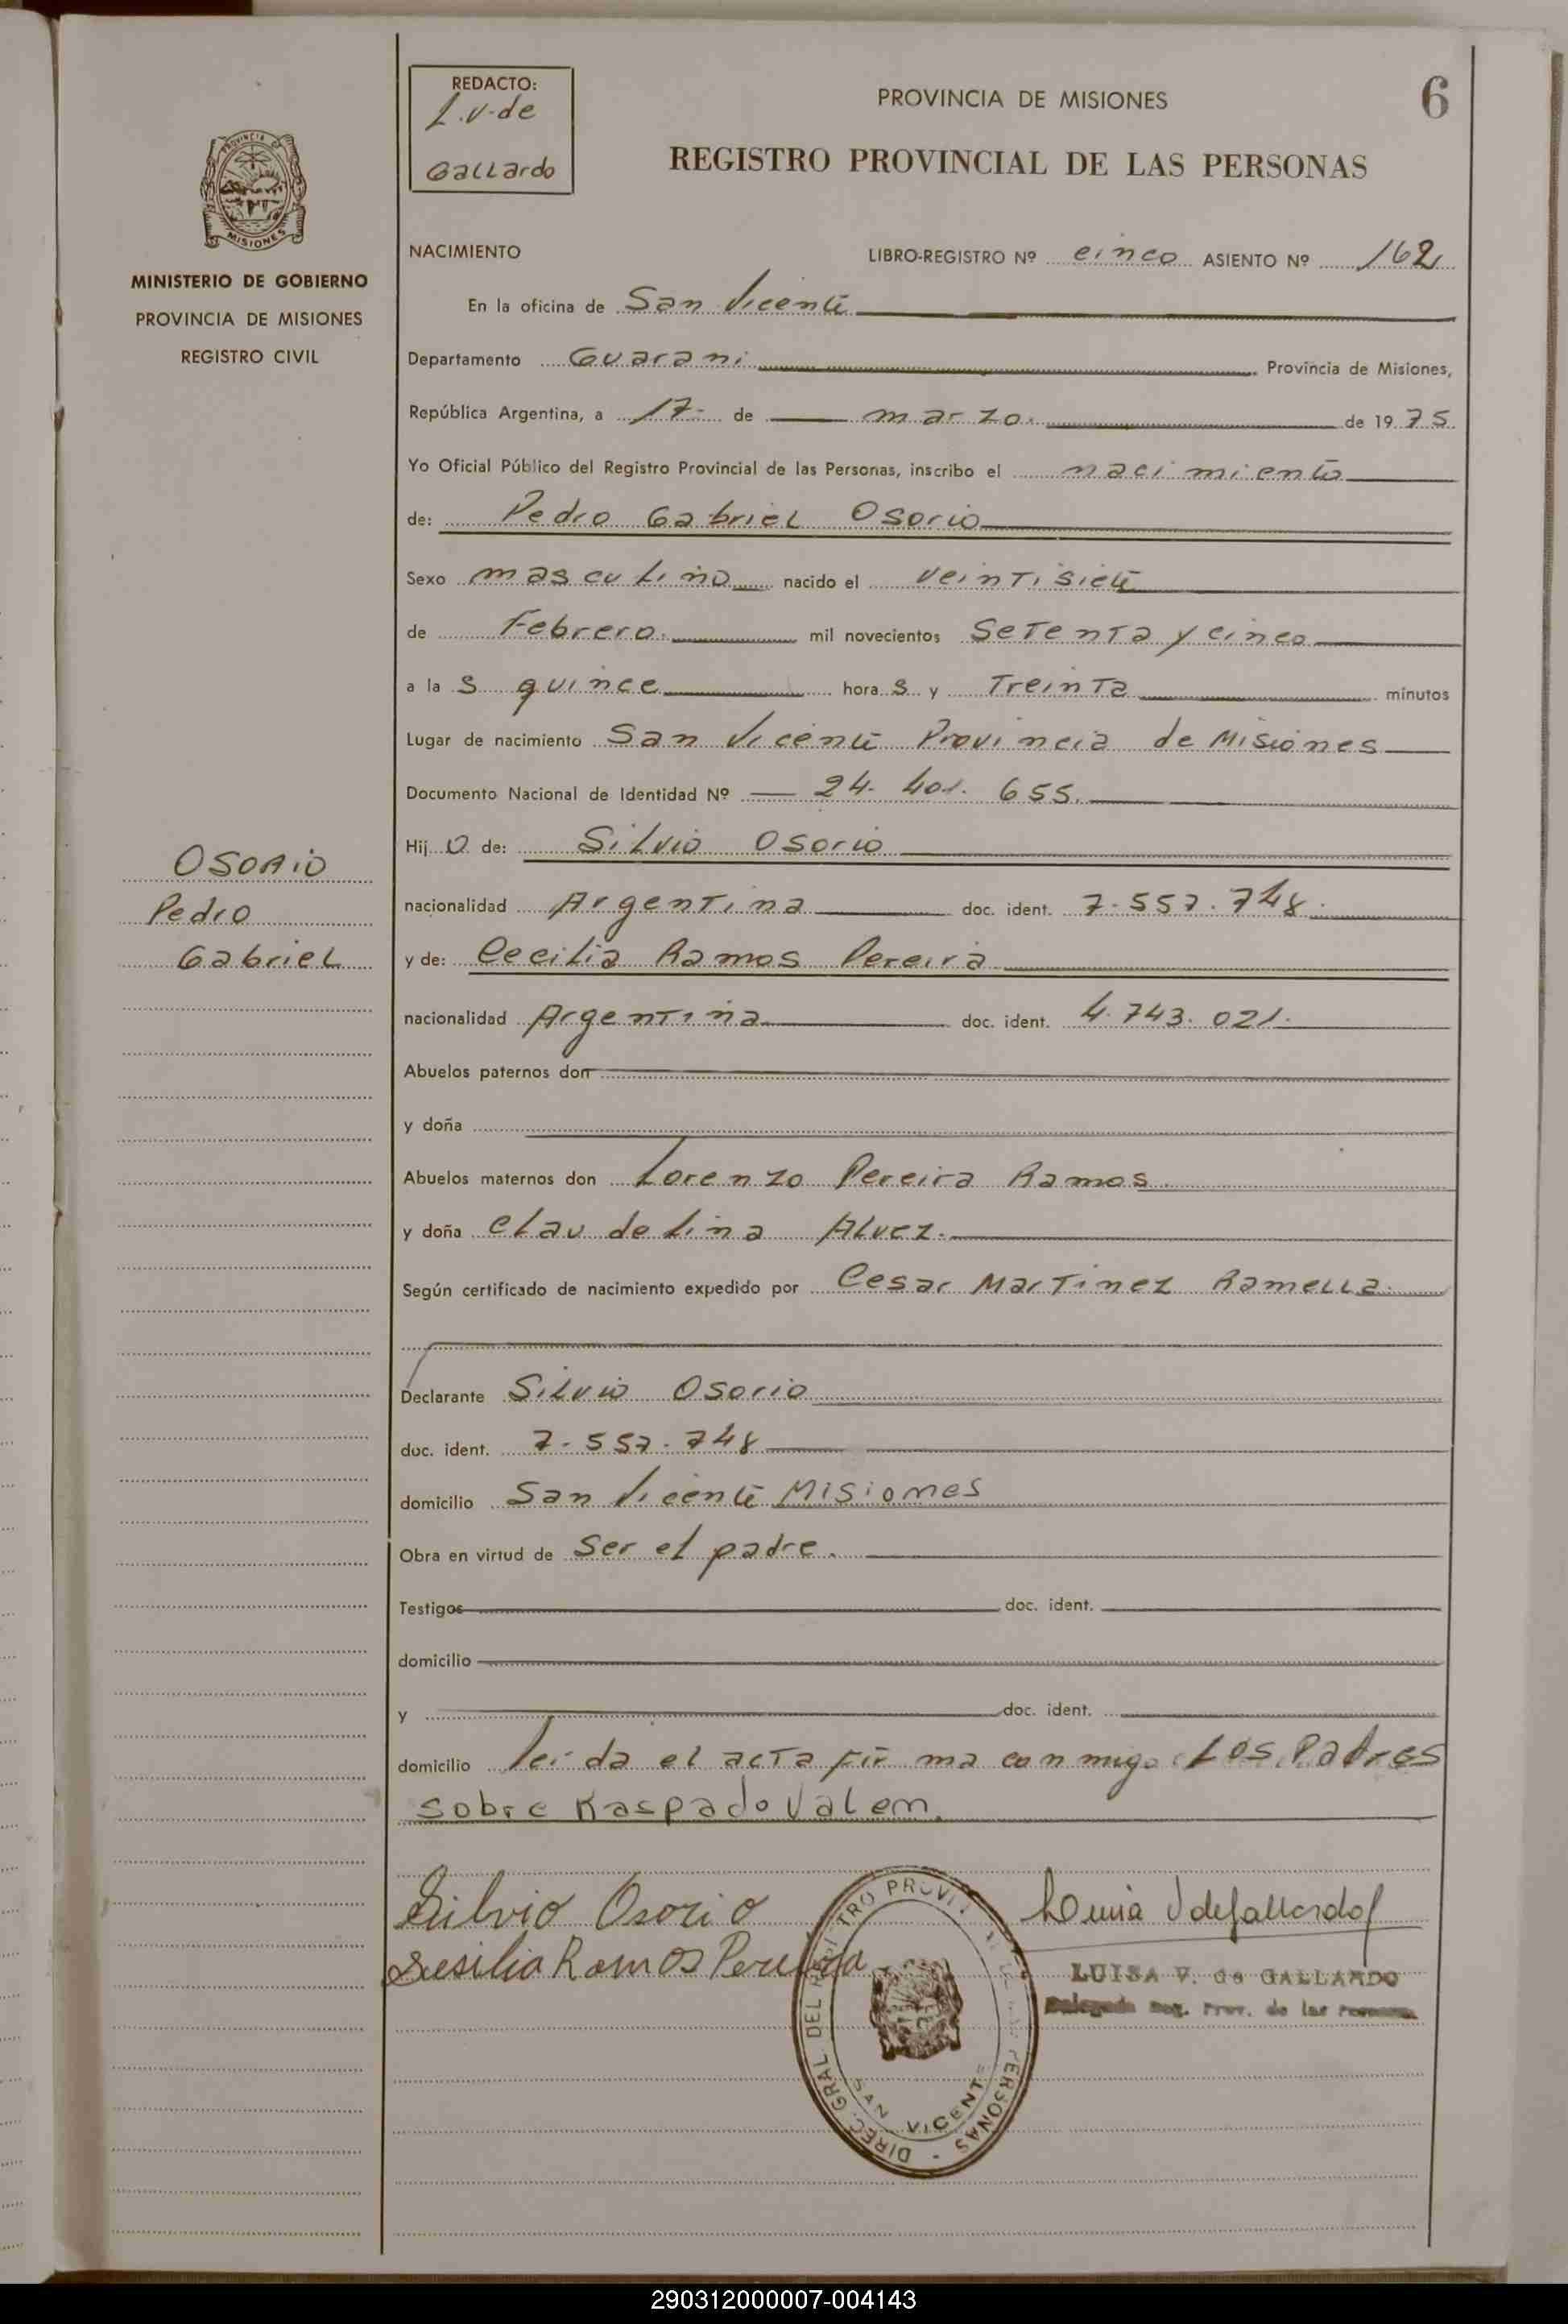 REDACTO:
L.V. de
Gallardo
PROVINCIA DE MISIONES
6
REGISTRO PROVINCIAL DE LAS PERSONAS
PROVINCIA DE
MISIONES
MINISTERIO DE GOBIERNO
PROVINCIA DE MISIONES
REGISTRO CIVIL
NACIMIENTO LIBRO-REGISTRO Nº cinco ASIENTO Nº 162
En la oficina de San Vicente
Departamento Guarani Provincia de Misiones,
República Argentina, a 17 de marzo. de 1975
Yo Oficial Público del Registro Provincial de las Personas, inscribo el nacimiento
de: Pedro Gabriel Osorio
Sexo masculino nacido el veintisiete
de Febrero. mil novecientos setenta y cinco
a las quince horas y treinta minutos
Lugar de nacimiento San Vicente Provincia de Misiones
Documento Nacional de Identidad Nº 24.401.655.
Hijo de: Silvio Osorio
nacionalidad Argentina doc. ident. 7.557.748.
y de: Cecilia Ramos Pereira
nacionalidad Argentina doc. ident. 4.743.021.
Abuelos paternos don
y doña
Abuelos maternos don Lorenzo Pereira Ramos.
y doña Claudelina Alvez.
Según certificado de nacimiento expedido por Cesar Martinez Ramella.
Declarante Silvio Osorio
doc. ident. 7.557.748
domicilio San Vicente Misiones
Obra en virtud de ser el padre.
Testigos doc. ident.
domicilio
y doc. ident.
domicilio leida el acta firma conmigo Los Padres
sobre Raspado Valem.
OSORIO
Pedro
Gabriel
Silvio Osorio
Susilia Ramos Pereira
Luisa V de Gallardo
LUISA V. de GALLARDO
Delegada Reg. Prov. de las Personas
DIREC. GRAL. DEL REGISTRO PROVINCIAL DE LAS PERSONAS
SAN VICENTE
290312000007-004143